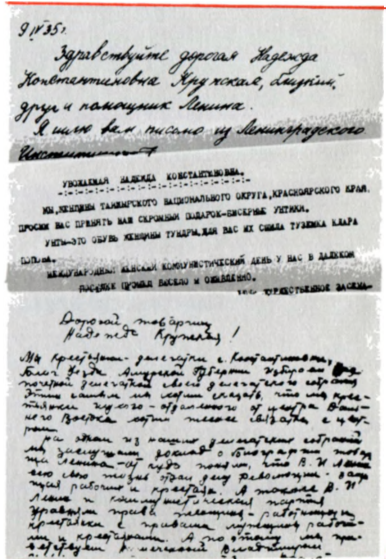 9 IV 35 г.
Здравствуйте дорогая Надежда
Константиновна Крупская, близкий,
друг и помощник Ленина.
Я шлю вам письмо из Ленинградского
УВАЖАЕМАЯ НАДЕЖДА КОНСТАНТИНОВНА.
МЫ, ЖЕНЩИНЫ ТАЙМЫРСКОГО НАЦИОНАЛЬНОГО ОКРУГА, КРАСНОЯРСКОГО КРАЯ.
ПРОСИМ ВАС ПРИНЯТЬ НАШ СКРОМНЫЙ ПОДАРОК-БИСЕРНЫЕ УНТИКИ.
УНТЫ-ЭТО ОБУВЬ ЖЕНЩИНЫ ТУНДРЫ, ДЛЯ ВАС ИХ СШИЛА ТУЗЕМКА КЛАРА
ПОПОВА.
МЕЖДУНАРОДНЫЙ ЖЕНСКИЙ КОММУНИСТИЧЕСКИЙ ДЕНЬ У НАС В ДАЛЕКОМ
ПОСЕЛКЕ ПРОШЕЛ ВЕСЕЛО И ОЖИВЛЕННО.
ТОРЖЕСТВЕННОЕ ЗАСЕДА-
Дорогой товарищ
Надежда Крупская!
Мы крестьянки-делегатки с. Константиновки,
Благ. уезда Амурской Губернии избираем
почетной делегаткой своего делегатского собрания
Этим самым мы хотим сказать, что мы крес-
тьянки глухого-отдаленного от центра Даль-
него Востока хотим тесное связатся с цент-
ром.
На одном из наших делегатских собраний
мы заслушали доклад о биографии товари-
ща Ленина-от куда поняли, что В. И. Ленин
всю свою жизнь отдал делу революции-
рабочих и крестьян. А также В. И.
Ленин и коммунистическая партия
права женщин-работниц и
крестьянки с правами мущины рабоче-
го и крестьянина. А по этому мы при-